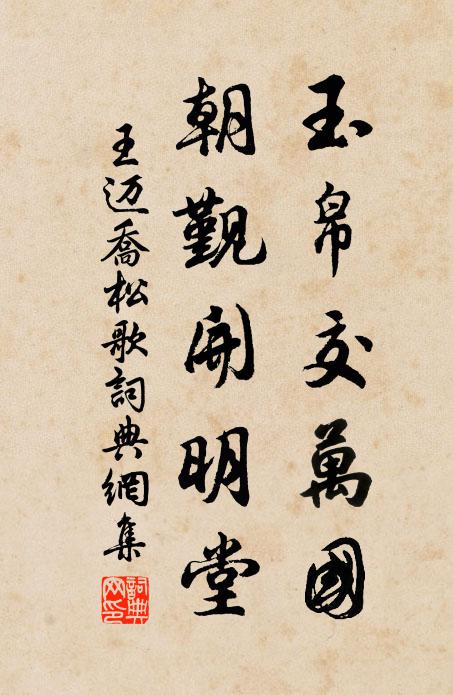 玉帛交萬國
朝觐開明堂
王迈喬松歌詞典網集
詞典网印